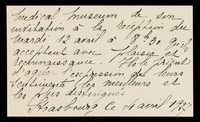 medical museum de son
invitation à la réception du
mardi 12 avril à 8 h 30 qu'ils
acceptent avec plaisir et
reconnaissance. Ils le prient
d'agréer l'expression de leurs
sentiments les meilleurs et
les plus distingués
Strasbourg ce 4 avril 1927